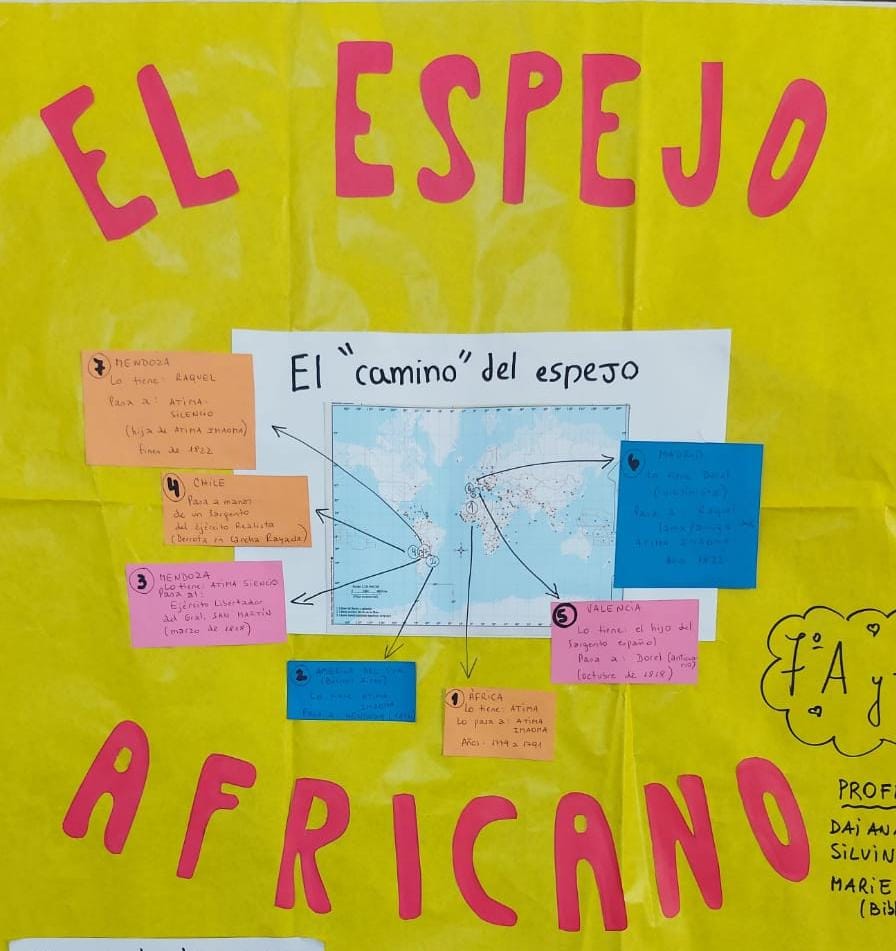 EL ESPEJO
El "camino" del espejo
7 MENDOZA
Lo tiene: RAQUEL
Pasa a: ATIMA
SILENCIO
(hija de ATIMA IMAOMA)
fines de 1822
4 CHILE
Pasa a manos
de un Sargento
del Ejército Realista
(Derrota en Cancha Rayada)
3 MENDOZA
Lo tiene: ATIMA SILENCIO
Pasa al:
Ejército Libertador
del Gral. SAN MARTÍN
(marzo de 1818)
2 AMÉRICA DEL SUR
(Buenos Aires)
Lo tiene ATIMA
IMAOMA
1 ÁFRICA
Lo tiene: ATIMA
Lo pasa a: ATIMA
IMAOMA
Años: 1779 a 1791
5 VALENCIA
Lo tiene: el hijo del
Sargento español
Pasa a: Dorel (anticua
rio)
(octubre de 1818)
6 MADRID
Lo tiene Dorel
Pasa Raquel
ATIMA IMAOMA
1822
7º A y
PROFE
DAIANA
SILVIN
MARIE
(Bib
AFRICANO